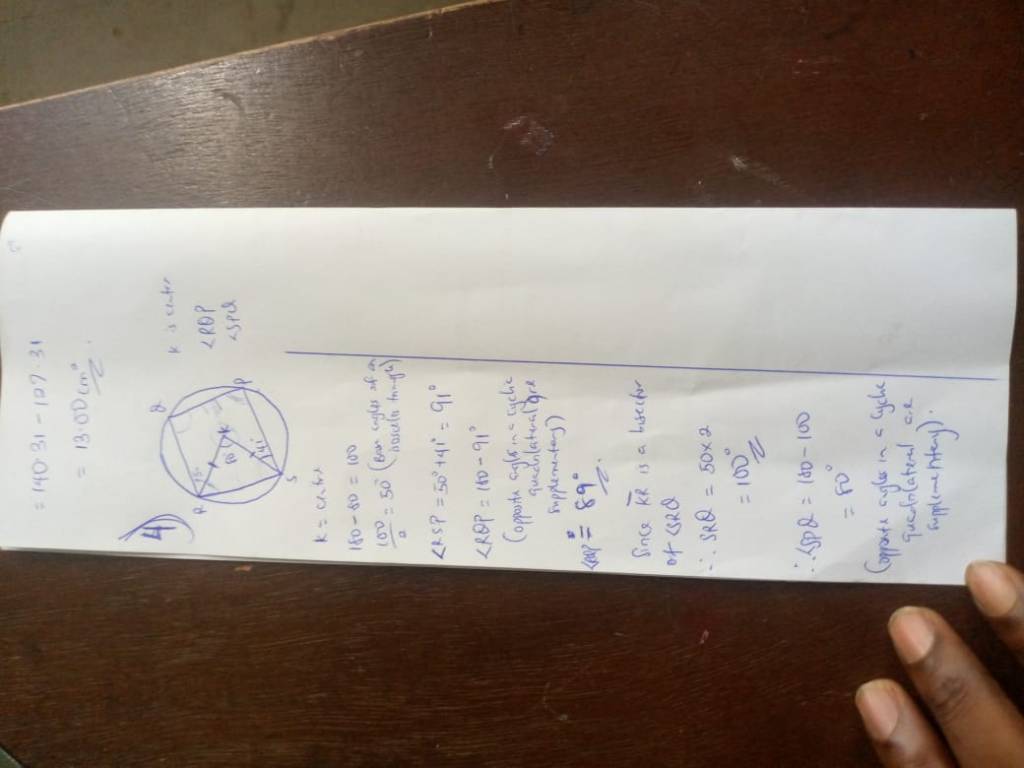 = 140.31 - 107.31
= 13.00 cm²
4)
K is center
<RQP
<SPQ
R
Q
P
S
K
80°
41°
K = center
180 - 80 = 100
100/2 = 50° (Base angles of an
isoscele triangle)
<RSP = 50° + 41° = 91°
<RQP = 180 - 91°
(opposite angles in a cyclic
quadrilateral are
supplementary)
<RQP = 89°
Since KR is a bisector
of <SRQ
∴ SRQ = 50 x 2
= 100°
∴ <SPQ = 180 - 100
= 80°
(opposite angles in a cyclic
quadrilateral are
supplementary).